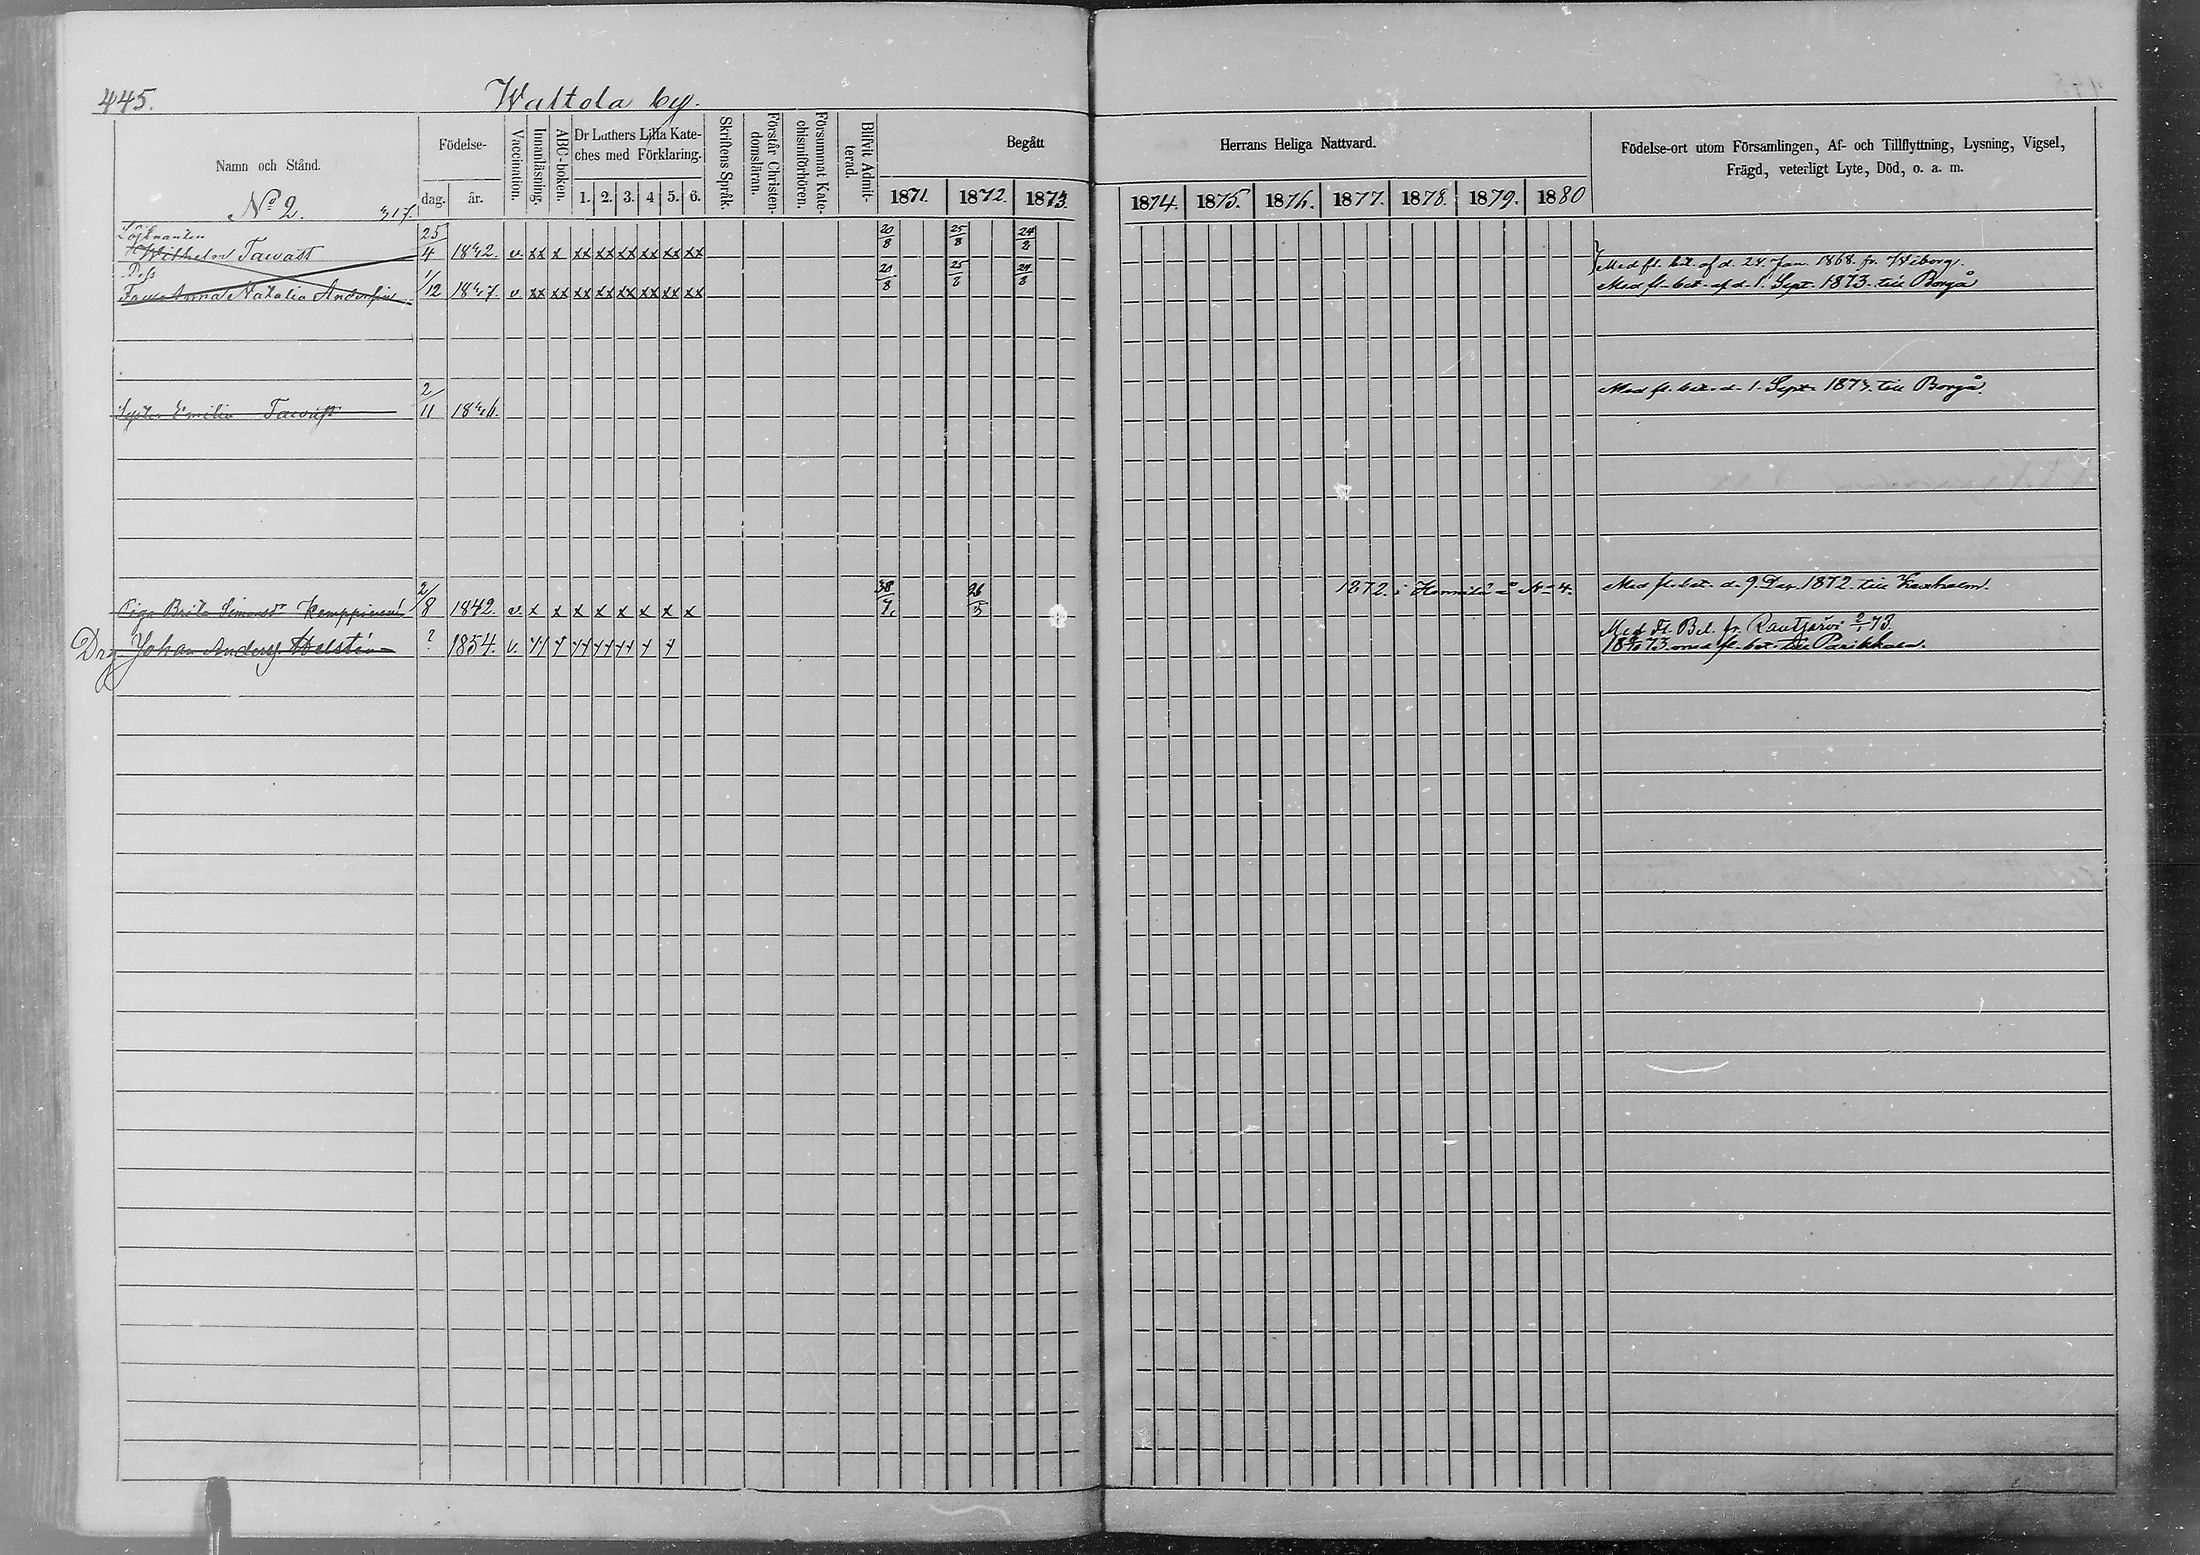 445.
Waltola by.
Namn och Stånd.
No 2. 317.
Födelse-
dag. år.
Vaccination.
Innanläsning.
ABC-boken.
Dr Luthers Lilla Kate-
ches med Förklaring.
1. 2. 3. 4 5. 6.
Skriftens Språk.
Förstår Christen-
domsläran.
Försummat Kate-
chismiförhören.
Blifvit Admit-
terad.
Begått
Herrans Heliga Nattvard.
1871. 1872. 1873. 1874. 1875. 1876. 1877. 1878. 1879. 1880
Födelse-ort utom Församlingen, Af- och Tillflyttning, Lysning, Vigsel,
Frägd, veterligt Lyte, Död, o. a. m.
Löjtnanten
Wilhelm Tawast 25/4 1842. v. xx x xx xx xx xx xx xx 20/8 25/8 24/8 Med fl. bet. af d. 24. Jan. 1868. fr. Wiborg.
Anna Natalia 1/12 1847. v. xx xx xx xx xx xx xx xx 20/8 25/8 24/8 Med fl. bet. af d. 1. Sept. 1873. till Borgå
Emilia Tawast 2/11 1846. Med fl. bet. d. 1. Sept. 1873. till Borgå.
Piga Brita Simonsdr Kemppinen 2/8 1842. v. x x x x x x x x 26/5 1872. i No 4. Med fl. bet. d. 9. Dec. 1872. till Kexholm.
Drg. Johan Anders. ? 1854. v. Med Fl. Bet. fr. Rautjärvi 2/1 73.
73. med fl. bet. till Parikkala.